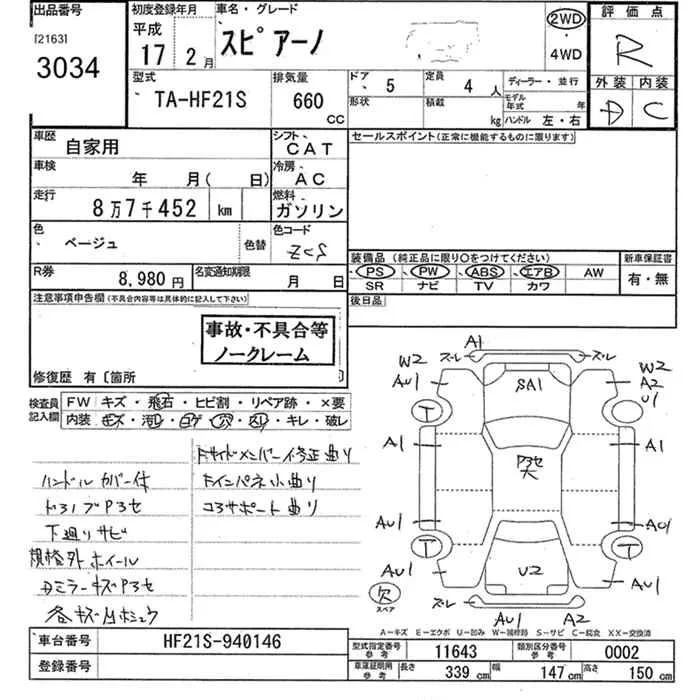 出品番号
[2163]
3034
初度登録年月
平成
17 2月
車名・グレード
スピアーノ
2WD
・
4WD
評価点
R
外装 内装
D C
型式
TA-HF21S
排気量
660
CC
ドア 5
定員 4 人
形状
積載 kg
ディーラー・並行
モデル年式 年
ハンドル 左・右
車歴
自家用
シフト
CAT
車検
年 月( 日)
冷房
AC
走行
8万7千452 km
燃料
ガソリン
色
ベージュ
色替
色コード
ZCS
R券
8,980円
名変通知期限
月 日
セールスポイント(正常に機能するものに限ります)
装備品(純正品に限り〇をつけてください)
PS PW ABS エアB AW
SR ナビ TV カワ
新車保証書
有・無
後日品
注意事項申告欄(不具合内容等は具体的に記入して下さい)
事故・不具合等
ノークレーム
修復歴 有〔箇所
検査員記入欄
FW キズ・飛石・ヒビ割・リペア跡・×要
内装 ・キレ・破レ
ハンドルカバー付
下廻りサビ
規格外ホイール
Fサイドメンバー修正曲り
Fインパネ小曲り
コアサポート曲り
A1
ズレ ズレ
W2
AU1
SA1
W2
A2
U1
T
A1
A1
P3セ
大
AU1
AU1
T T
AU1
U2
AU1
欠
スペア
ズレ
AU1 A2
A−キズ E−エクボ U−凹み W−補修跡 S−サビ C−腐食 XX−交換済
車台番号
HF21S-940146
登録番号
型式指定番号 参考 11643
類別区分番号 参考 0002
車庫証明用 参考 長さ 339 cm 幅 147 cm 高さ 150 cm